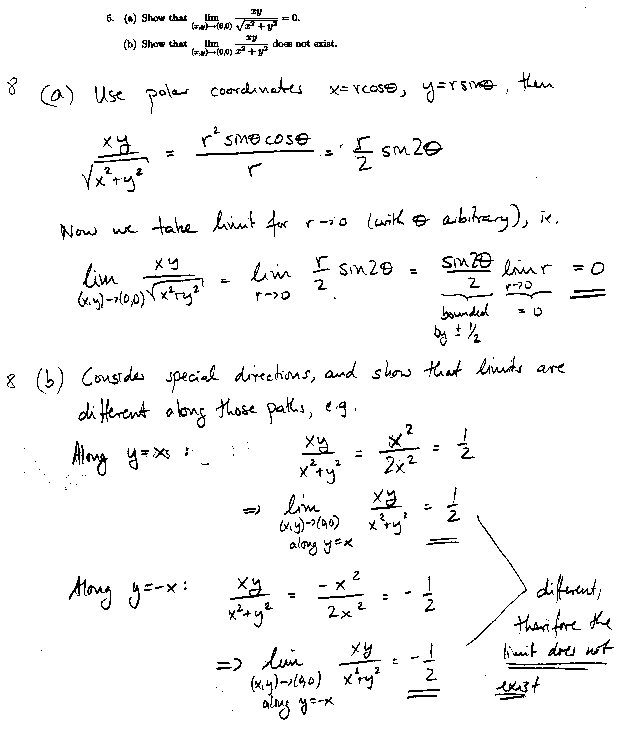 6. (a) Show that lim (x,y)→(0,0) xy / √(x² + y²) = 0.
(b) Show that lim (x,y)→(0,0) xy / (x² + y²) does not exist.
8 (a) Use polar coordinates x=rcosθ, y=rsinθ, then
xy / √(x²+y²) = r² sinθ cosθ / r = r/2 sin2θ
Now we take limit for r→0 (with θ arbitrary), ie.
lim (x,y)→(0,0) xy / √(x²+y²) = lim r→0 r/2 sin2θ = sin2θ / 2 lim r→0 r = 0
bounded by ± 1/2 = 0
8 (b) Consider special directions, and show that limits are
different along those paths, e.g.
Along y=x : xy / (x²+y²) = x² / 2x² = 1/2
⇒ lim (x,y)→(0,0) along y=x xy / (x²+y²) = 1/2
Along y=-x: xy / (x²+y²) = -x² / 2x² = -1/2
⇒ lim (x,y)→(0,0) along y=-x xy / (x²+y²) = -1/2
different,
therefore the
limit does not
exist